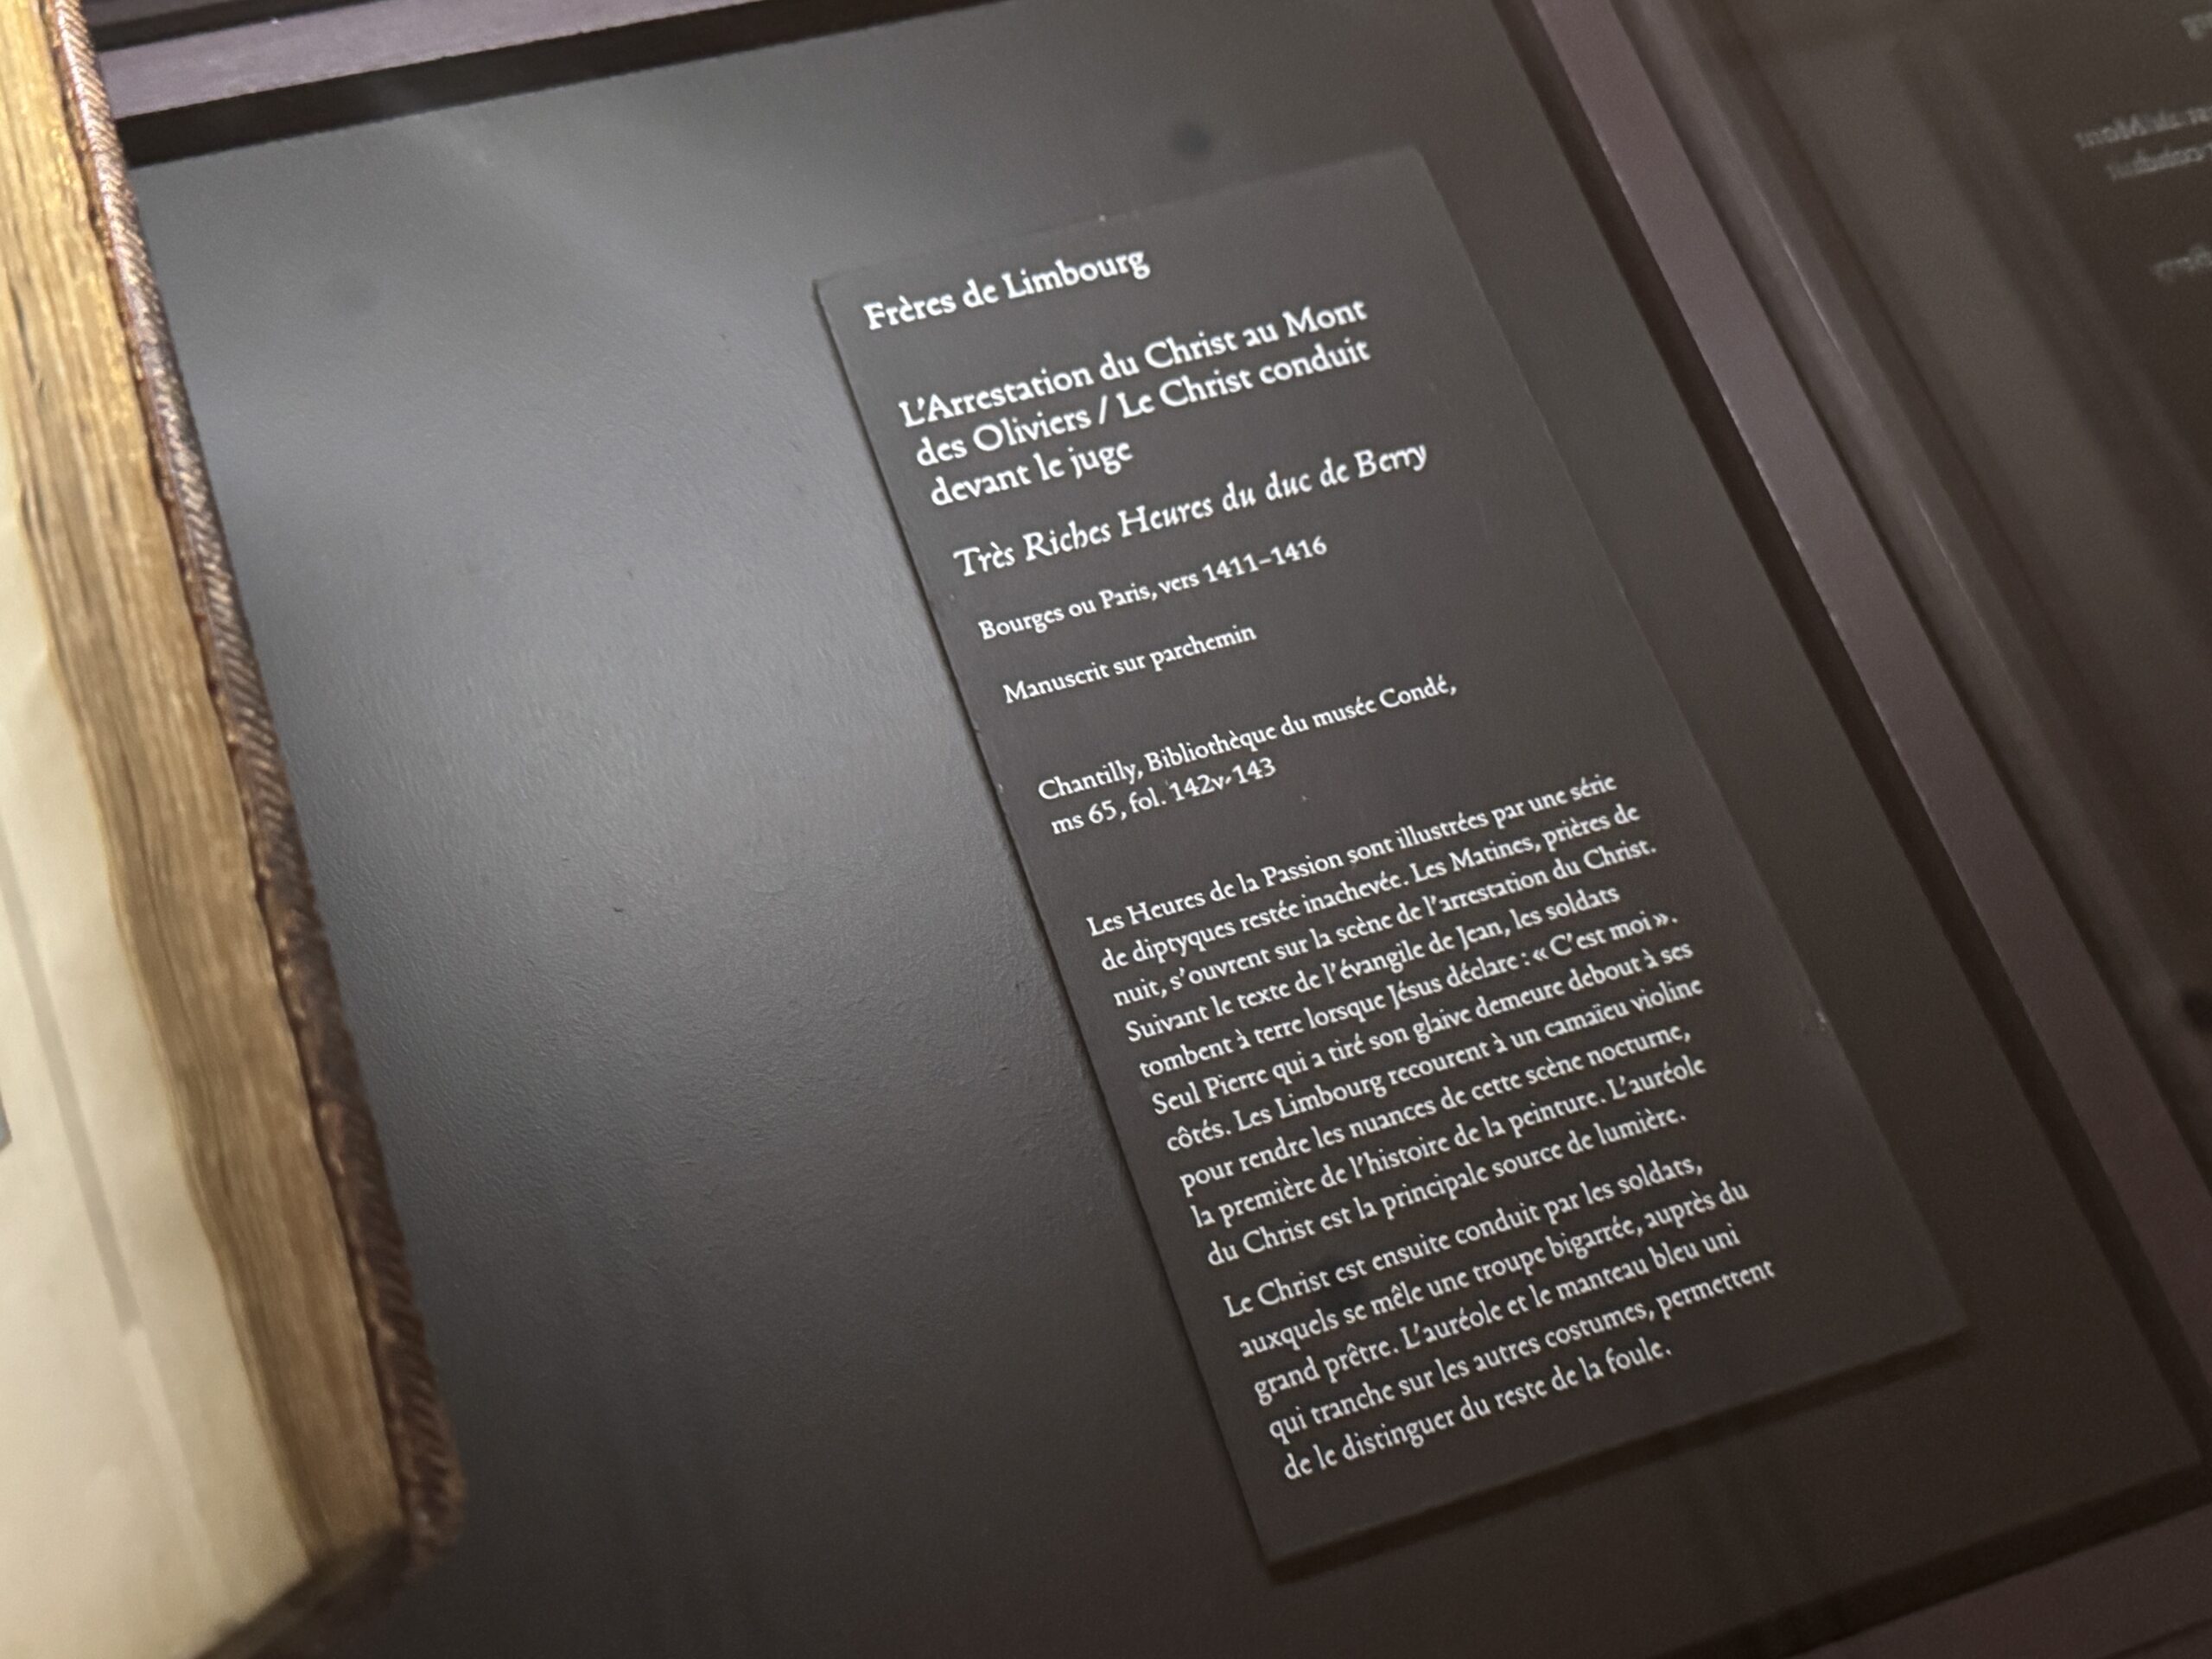 Frères de Limbourg
L'Arrestation du Christ au Mont
des Oliviers / Le Christ conduit
devant le juge
Très Riches Heures du duc de Berry
Bourges ou Paris, vers 1411–1416
Manuscrit sur parchemin
Chantilly, Bibliothèque du musée Condé,
ms 65, fol. 142v-143
Les Heures de la Passion sont illustrées par une série
de diptyques restée inachevée. Les Matines, prières de
nuit, s'ouvrent sur la scène de l'arrestation du Christ.
Suivant le texte de l'évangile de Jean, les soldats
tombent à terre lorsque Jésus déclare : « C'est moi ».
Seul Pierre qui a tiré son glaive demeure debout à ses
côtés. Les Limbourg recourent à un camaïeu violine
pour rendre les nuances de cette scène nocturne,
la première de l'histoire de la peinture. L'auréole
du Christ est la principale source de lumière.
Le Christ est ensuite conduit par les soldats,
auxquels se mêle une troupe bigarrée, auprès du
grand prêtre. L'auréole et le manteau bleu uni
qui tranche sur les autres costumes, permettent
de le distinguer du reste de la foule.